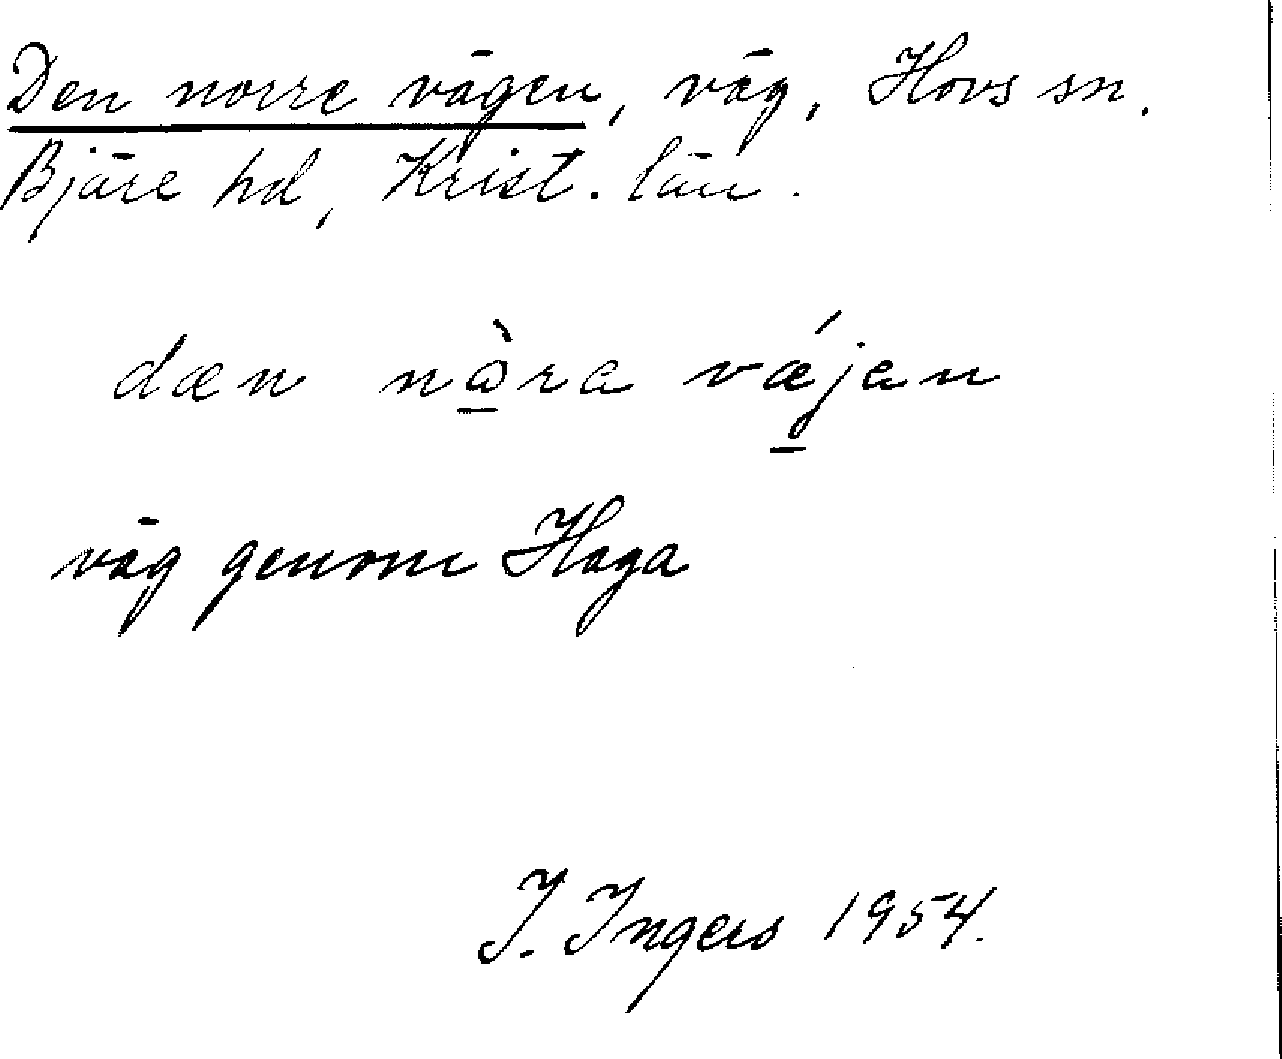 Den norre vägen, väg, Hovs sn.
Bjäre hd, Krist. län.
dæn nàra vǽjan
väg genom Haga
I. Ingers 1954.